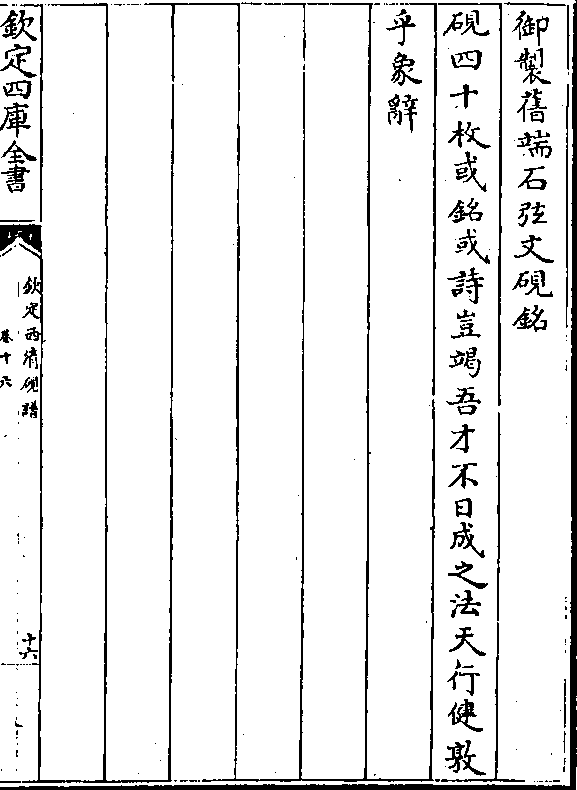 御製舊端石弦文硯銘
硯四十枚或銘或詩豈竭吾才不日成之法天行健敦
乎象辭
欽定四庫全書
欽定西清硯譜
卷十六
十六